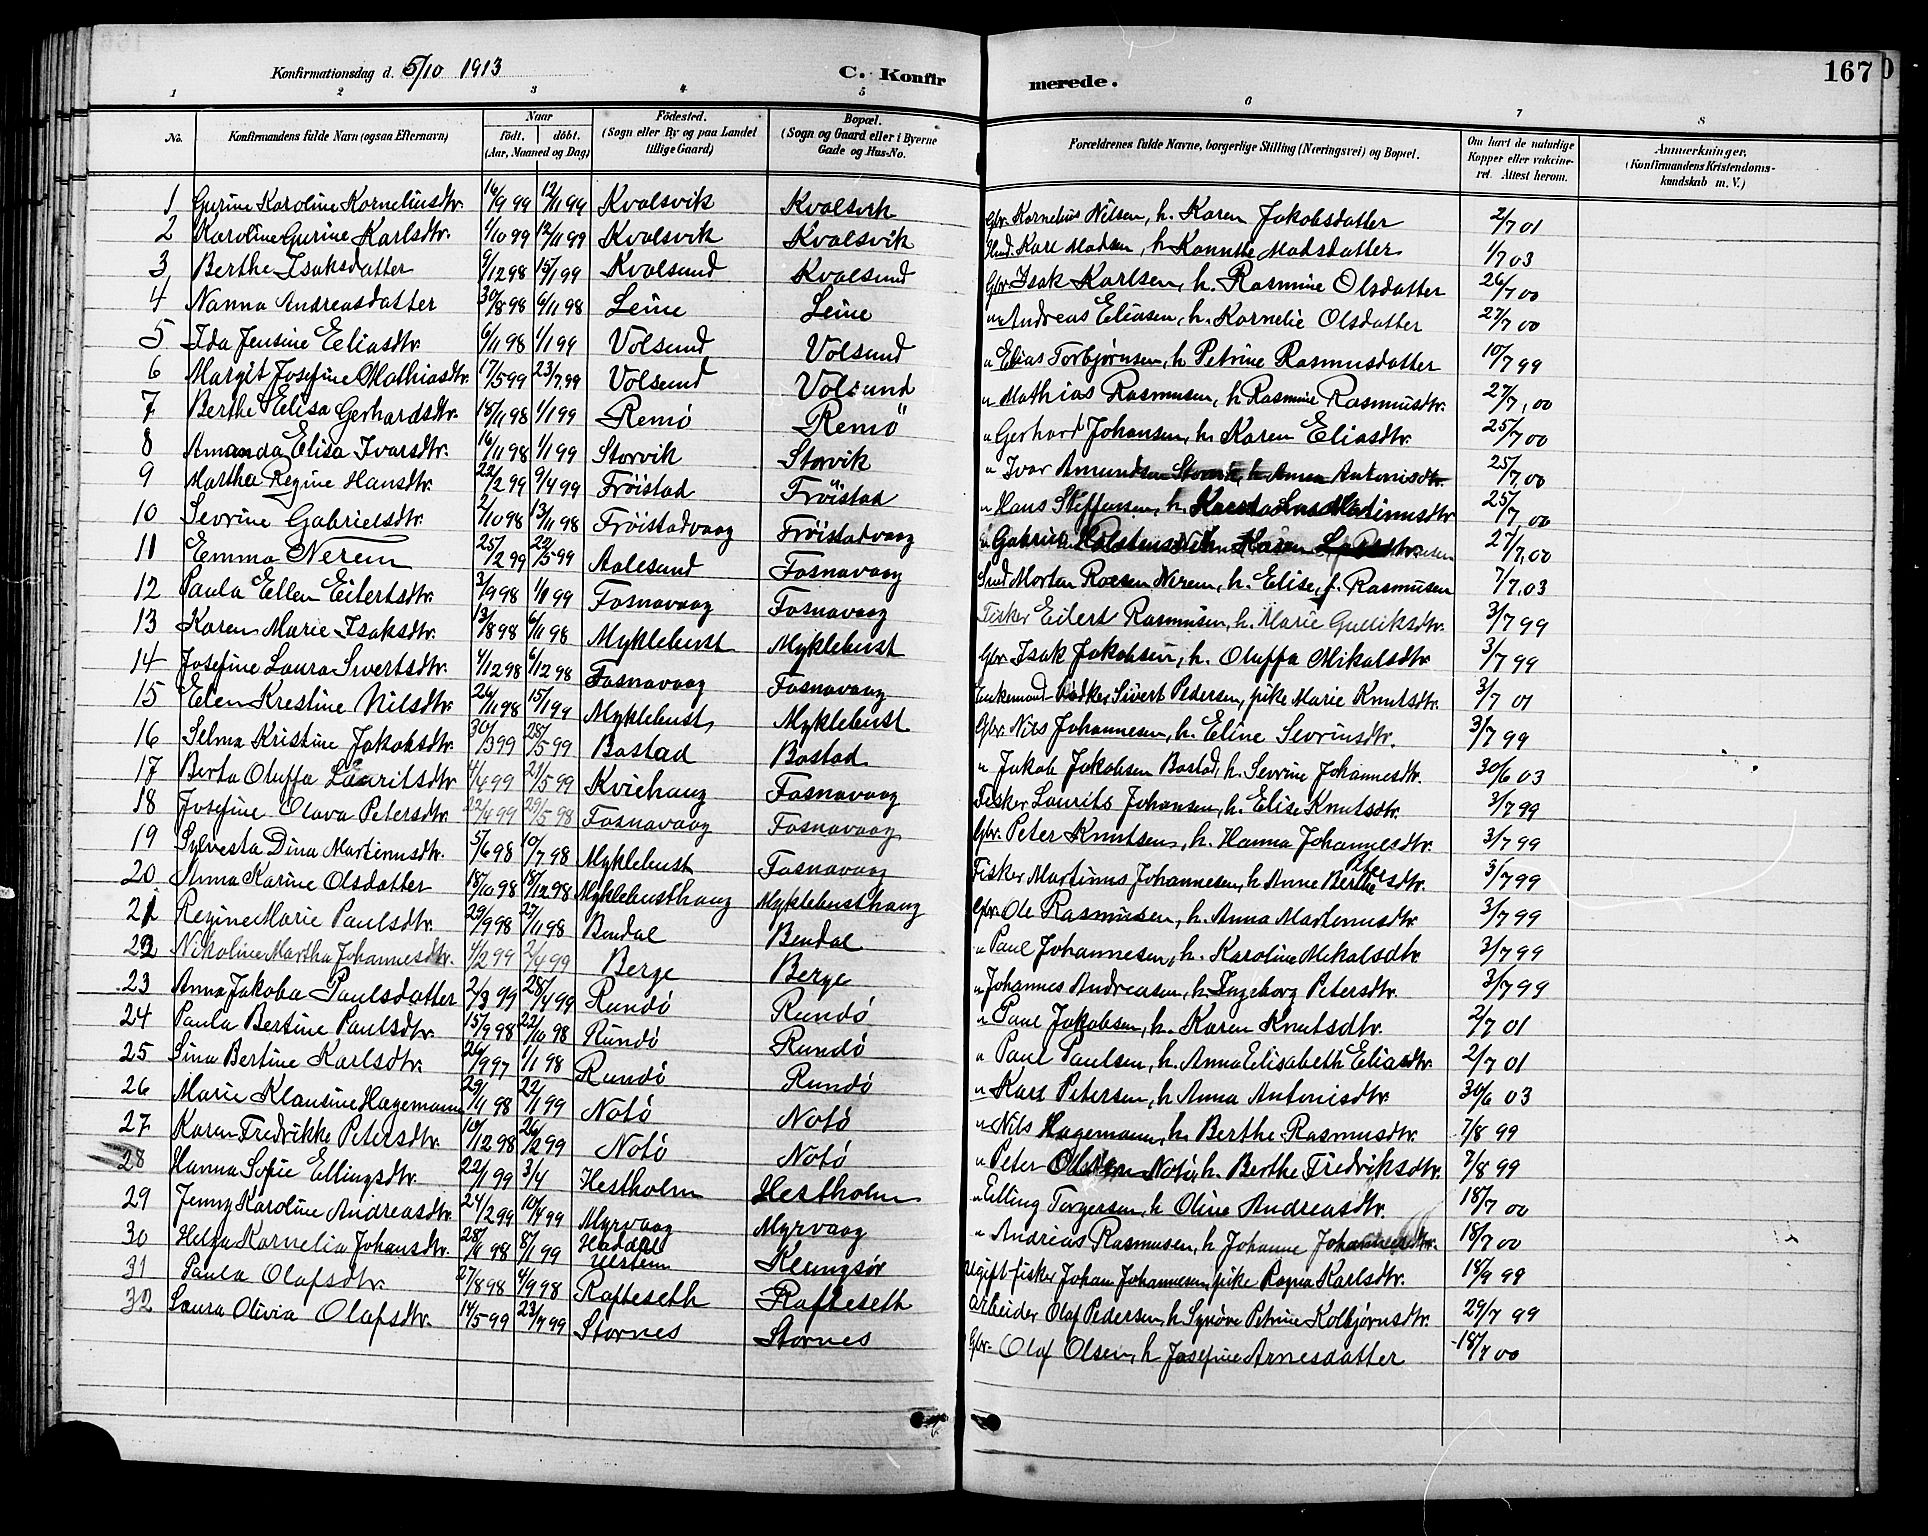 Konfirmationsdag d. 5/10 1913
C. Konfirmerede.
167
1 2 3 4 5 6 7 8
No. | Konfirmandens fulde Navn (ogsaa Efternavn) | Naar født. døbt. (Aar, Maaned og Dag) | Fødested. (Sogn eller By og paa Landet tillige Gaard) | Bopæl. (Sogn og Gaard eller i Byerne Gade og Hus-No. | Forældrenes fulde Navne, borgerlige Stilling (Næringsvei) og Bopæl. | Om havt de naturlige Kopper eller vakcineret. Attest herom. | Anmærkninger. (Konfirmandens Kristendomskundskab m. V.)
1 Gurine Karoline Korneliusdtr. 14/9 99 12/11 99 Kvalsvik Kvalsvik Gbr. Kornelius Nilsen, h. Karen Jakobsdatter 2/7 01
2 Karoline Gurine Karlsdtr. 1/10 99 12/11 99 Kvalsvik Kvalsvik Karl Madsen, h. Madsdatter 1/7 03
3 Berthe Isaksdatter 9/12 98 15/1 99 Kvalsund Kvalsund Gbr. Isak Karlsen, h. Rasmine Olsdatter 26/7 00
4 Nanna Andreasdatter 30/8 98 6/11 98 Leine Leine " Andreas Eliasen, h. Kornelie Olsdatter 27/7 00
5 Ida Jensine Eliasdtr. 6/11 98 1/1 99 Volsund Volsund " Elias Torbjørnsen, h. Petrine Rasmusdatter 10/7 99
6 Margit Josefine Mathiasdtr. 17/5 99 23/7 99 Volsund Volsund " Mathias Rasmusen, h. Rasmine Rasmusdtr. 27/7, 00
7 Berthe Elisa Gerhardsdtr. 18/11 98 1/1 99 Remø Remö " Gerhard Johansen, h. Karen Eliasdtr. 25/7 00
8 Amanda Elisa Ivarsdtr. 16/11 98 1/1 99 Storvik Storvik " Ivar Amundsen Storvik, h. Anna Antonisdtr. 25/7, 00
9 Martha Regine Hansdtr. 22/2 99 9/4 99 Frøistad Fröistad " Hans Steffensen, h. Martinusdtr 25/7, 00
10 Sevrine Gabrielsdtr. 2/10 98 13/11 98 Frøistadvaag Frøistadvaag " Gabriel h. Karen 27/7, 00
11 Emma Nerem 25/2 99 22/5 99 Aalesund Fosnavaag Morten Nerem, h. Elise, f. Rasmusen 7/7, 03
12 Paula Ellen Eilertsdtr. 3/9 98 1/1 99 Fosnavaag Fosnavaag Fisker Eilert Rasmusen, h. Marie Gulliksdtr. 3/7 99
13 Karen Marie Isaksdtr. 13/8 98 6/11 98 Myklebust Myklebust Gbr. Isak Jakobsen, h. Oluffa Mikalsdtr. 3/7 99
14 Josefine Laura Sivertsdtr. 4/12 98 6/12 98 Fosnavaag Fosnavaag Enkemand Fisker Sivert Pedersen, pike Marie Knutsdtr. 3/7 01
15 Elen Krestine Nilsdtr. 26/11 98 15/1 99 Myklebust Myklebust Gbr. Nils Johannesen, h. Eline Sevrinsdtr. 3/7 99
16 Selma Kristine Jakobsdtr. 30/3 99 28/5 99 Bostad Bostad " Jakob Jakobsen Bostad, h. Sevrine Johannesdtr. 30/6 03
17 Berta Oluffa Lauritsdtr 4/4 99 21/5 99 Kviehaug Fosnavaag Fisker Laurits Johansen, h. Elise Knutsdtr. 3/7 99
18 Josefine Olava Petersdtr. 22/4 99 29/5 98 Fosnavaag Fosnavaag Gbr. Peter Knutsen, h. Hanna Johannesdtr. 3/7 99
19 Sylvesta Dina Martinusdtr. 5/6 98 10/7 98 Myklebust Fosnavaag Fisker Martinus Johannesen, h. Anne Berthe dtr. 3/7 99
20 Anna Karine Olsdatter 18/10 98 18/12 98 Myklebusthaug Myklebusthaug Gbr. Ole Rasmusen, h. Anna Martinusdtr. 3/7 99
21 Regine Marie Paulsdtr. 29/9 98 27/11 98 Bendal Bendal " Paul Johannesen, h. Karoline Mikalsdtr. 3/7 99
22 Nikoline Martha Johannesdtr. 4/2 99 2/4 99 Berge Berge " Johannes Andreasen, h. Ingeborg Petersdtr. 3/7 99
23 Anna Jakoba Paulsdatter 2/3 99 28/4 99 Rundø Rundø " Paul Jakobsen, h. Karen Knutsdtr. 2/7 01
24 Paula Bertine Paulsdtr. 15/9 98 22/10 98 Rundø Rundø " Paul Paulsen, h. Anna Elisabeth Eliasdtr. 2/7 01
25 Sina Bertine Karlsdtr. 26/9 97 1/1 98 Rundø Rundø " Karl Petersen, h. Anna Antonisdtr. 30/6 03
26 Marie Klausine Hagemann 29/11 98 22/1 99 Notø Notø " Nils Hagemann, h. Berthe Rasmusdtr. 7/8 99
27 Karen Fredrikke Petersdtr. 10/12 98 26/2 99 Notø Notø " Peter Olsen Notø, h. Berthe Fredriksdtr. 7/8 99
28 Hanna Sofie Ellingsdtr. 22/1 99 3/4 Hestholm Hestholm " Elling Torgersen, h. Oline Andreasdtr. 18/7 00
29 Jenny Karoline Andreasdtr. 24/2 99 10/4 99 Myrvaag Myrvaag " Andreas Rasmusen, h. Johanne Johannesdtr. 18/7 00
30 Helga Kornelia Johansdtr. 28/11 98 8/1 99 Haddal Ulstein Klungsør Ugift fisker Johan Johannesen, pike Ragna Karlsdtr. 18/9 99
31 Paula Olafsdtr. 27/8 98 4/9 98 Rafteseth Rafteseth Arbeider Olaf Pedersen, h. Synøve Petrine Kolbjørnsdtr. 29/7 99
32 Laura Olivia Olafsdtr. 14/5 99 23/7 99 Stornes Stornes Gbr. Olaf Olsen, h. Josefine Arnesdatter 18/7 00